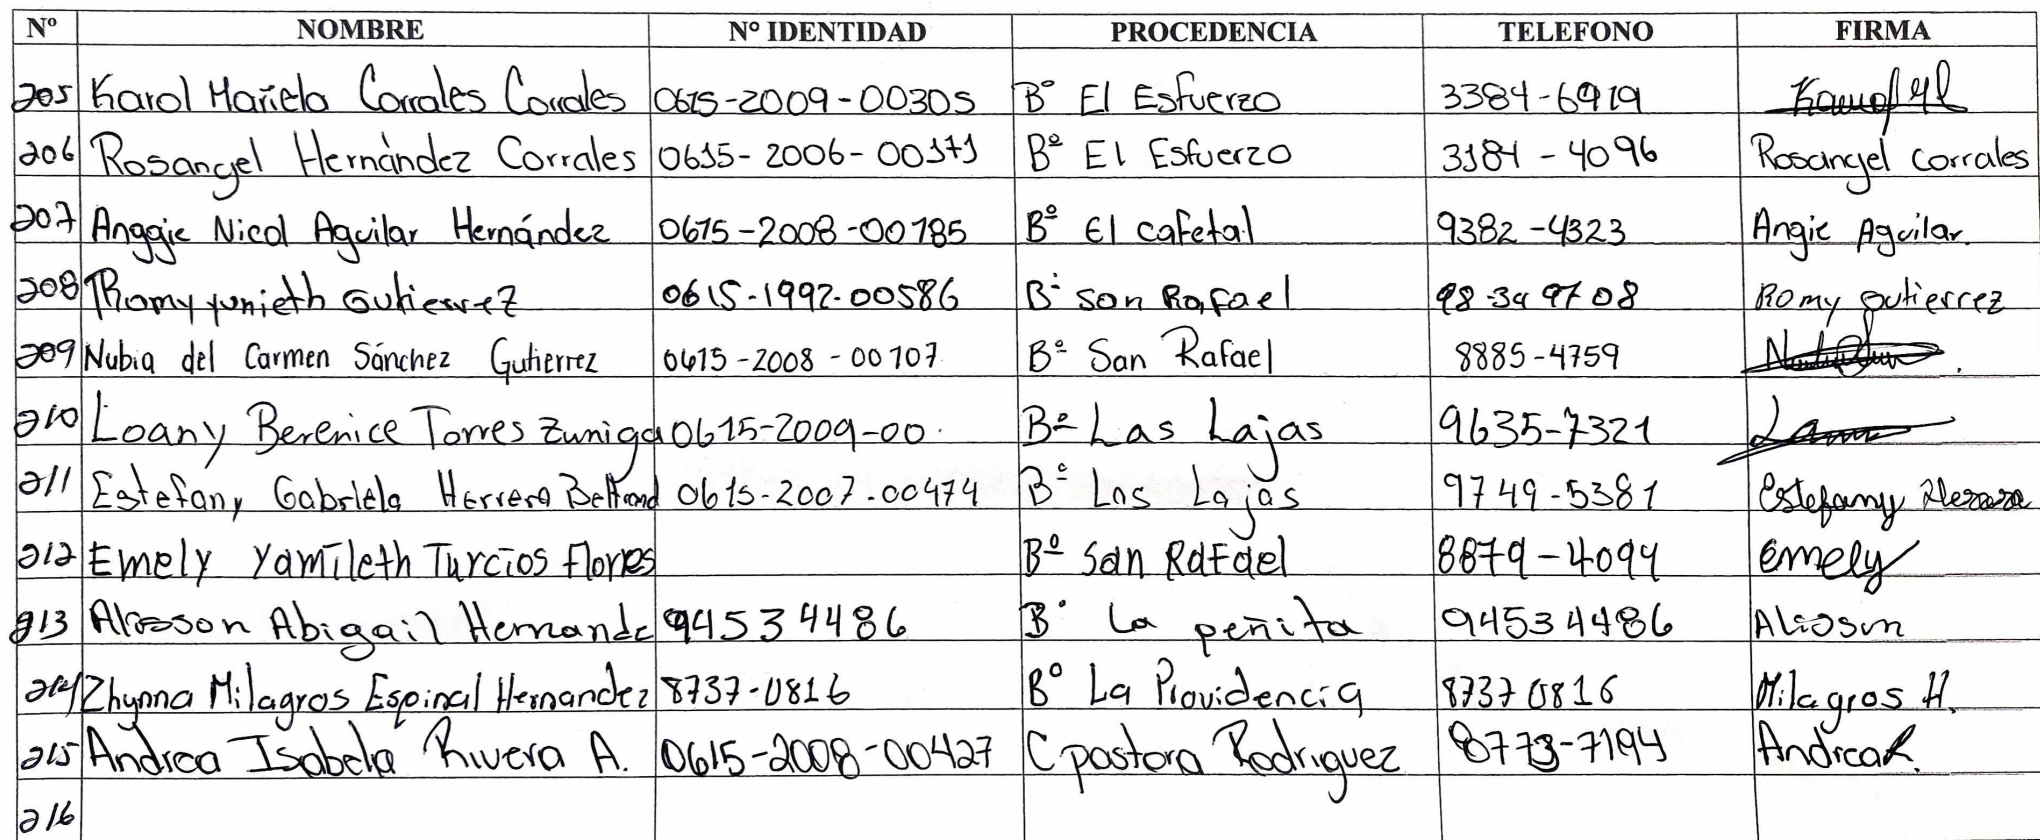 Nº NOMBRE Nº IDENTIDAD PROCEDENCIA TELEFONO FIRMA
205 Karol Mariela Corrales Corrales 0615-2009-00305 Bº El Esfuerzo 3384-6919
206 Rosangel Hernández Corrales 0615-2006-00171 Bº El Esfuerzo 3184-4096 Rosangel Corrales
207 Anggie Nicol Aguilar Hernández 0615-2008-00185 Bº El cafetal 9382-4323 Angie Aguilar.
208 Romy yunieth Gutierrez 0615-1992-00586 B· san Rafael 98-34 9708 Romy gutierrez
209 Nubia del Carmen Sánchez Gutierrez 0615-2008-00107 Bº San Rafael 8885-4759
210 Loany Berenice Torres Zuniga 0615-2009-00 Bº Las Lajas 9635-7321
211 Estefany Gabriela Herrera Beltrand 0615-2007-00474 Bº Las Lajas 9749-5381 Estefany Herrera
212 Emely Yamileth Turcios Flores Bº San Rafael 8879-4094 Emely
213 Abigail Hernande 94534486 B· La peñita 94534486
214 Zhynna Milagros Espinal Hernandez 8737-0816 Bº La Providencia 8737 0816 Milagros H.
215 Andrea Isabela Rivera A. 0615-2008-00427 C pastora Rodriguez 8773-7194 Andrea R.
216